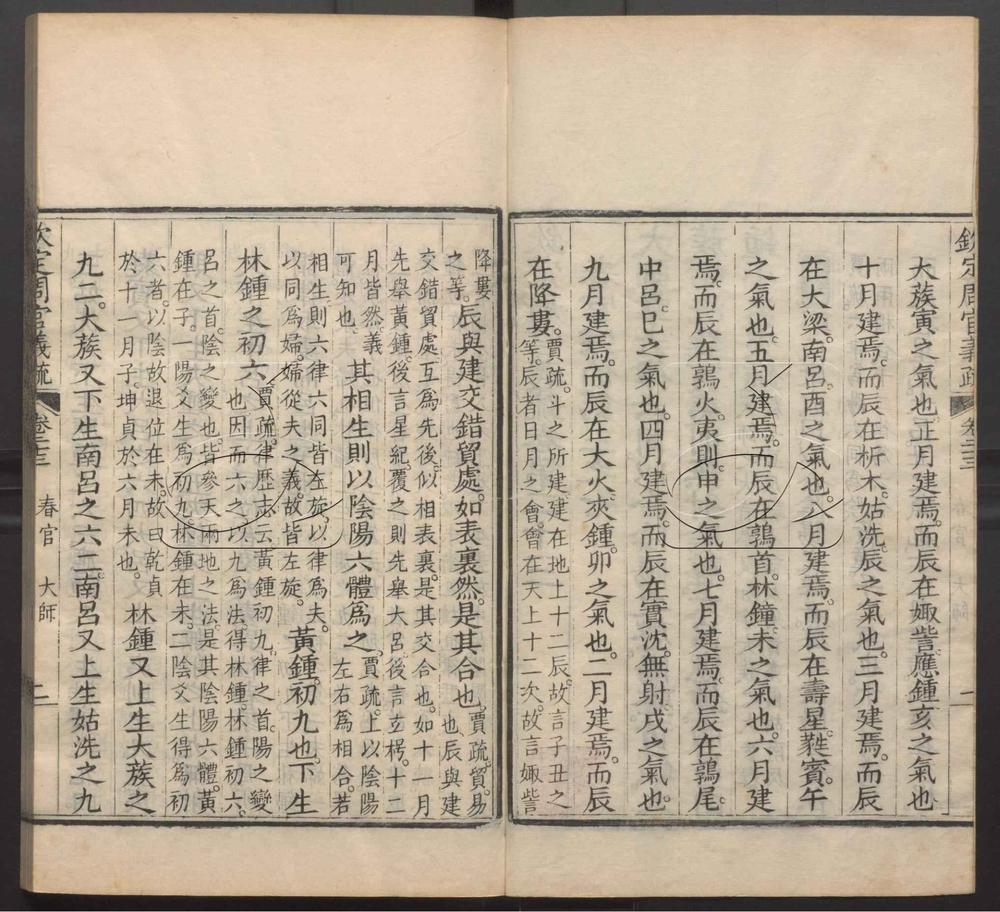 欽定周官義疏 卷二十三 一
大蔟寅之氣也。正月建焉。而辰在娵訾。應鍾亥之氣也
十月建焉。而辰在析木。姑洗辰之氣也。三月建焉。而辰
在大梁。南呂酉之氣也。八月建焉。而辰在壽星。蕤賓。午
之氣也。五月建焉。而辰在鶉首。林鐘。未之氣也。六月建
焉。而辰在鶉火。夷則。申之氣也。七月建焉。而辰在鶉尾。
中呂。巳之氣也。四月建焉。而辰在實沈。無射戌之氣也。
九月建焉。而辰在大火。夾鍾。卯之氣也。二月建焉。而辰
在降婁。
賈疏。斗之所建建在地上十二辰。故言子丑之
等。辰者日月之會。會在天上十二次。故言娵訾
降婁
之等。
辰與建交錯貿處。如表裏然。是其合也。
賈疏。貿。易
也。辰與建
交錯貿處。互爲先後。似相表裏。是其交合也。如十一月
先舉黃鍾。後言星紀。覆之則先舉大呂。後言玄枵。十二
月皆然。義
可知也。
其相生則以陰陽六體爲之。
賈疏。上以陰陽
左右爲相合。若
相生。則六律六同皆左旋。以律爲夫。
以同爲婦。婦從夫之義。故皆左旋。
黃鍾。初九也。下生
林鍾之初六。
賈疏。律歷志云。黃鍾初九。律之首。陽之變
也。因而六之。以九爲法。得林鍾。林鍾初六。
呂之首。陰之變也。皆參天兩地之法。是其陰陽六體。黃
鍾在子。一陽爻生爲初九。林鍾在未。二陰爻生得爲初
六者。以陰故退位在未。故曰乾貞
於十一月子。坤貞於六月未也。
林鍾又上生大蔟之
九二。大蔟又下生南呂之六二。南呂又上生姑洗之九
欽定周官義疏 卷二十三 春官 大師 二